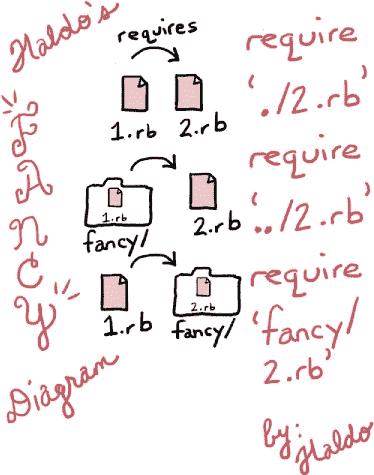 Haldo's
FANCY
Diagram
requires
1.rb 2.rb
require
'./2.rb'
1.rb
fancy/
2.rb
require
'../2.rb'
1.rb
2.rb
fancy/
require
'fancy/
2.rb'
by:
Haldo